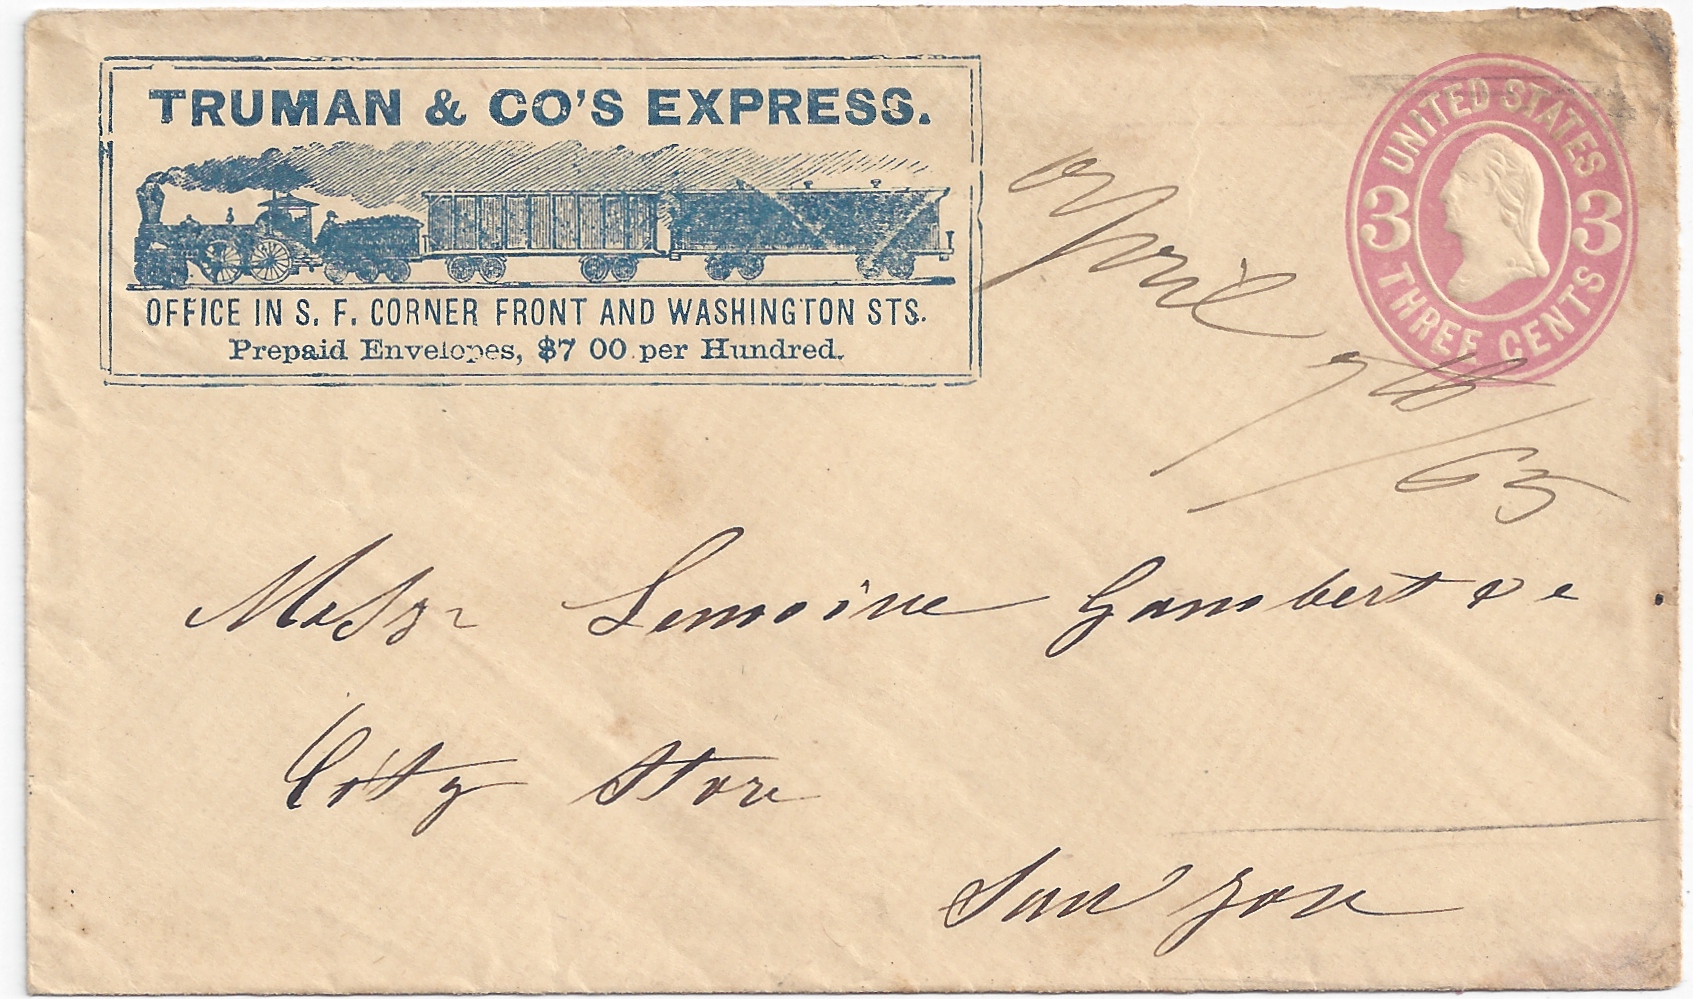 TRUMAN & CO'S EXPRESS.
OFFICE IN S. F. CORNER FRONT AND WASHINGTON STS.
Prepaid Envelopes, $7 00 per Hundred.
UNITED STATES
3 3
THREE CENTS
April
7th/65
Messr Lemoine Gambert & c
City Store
San Jose